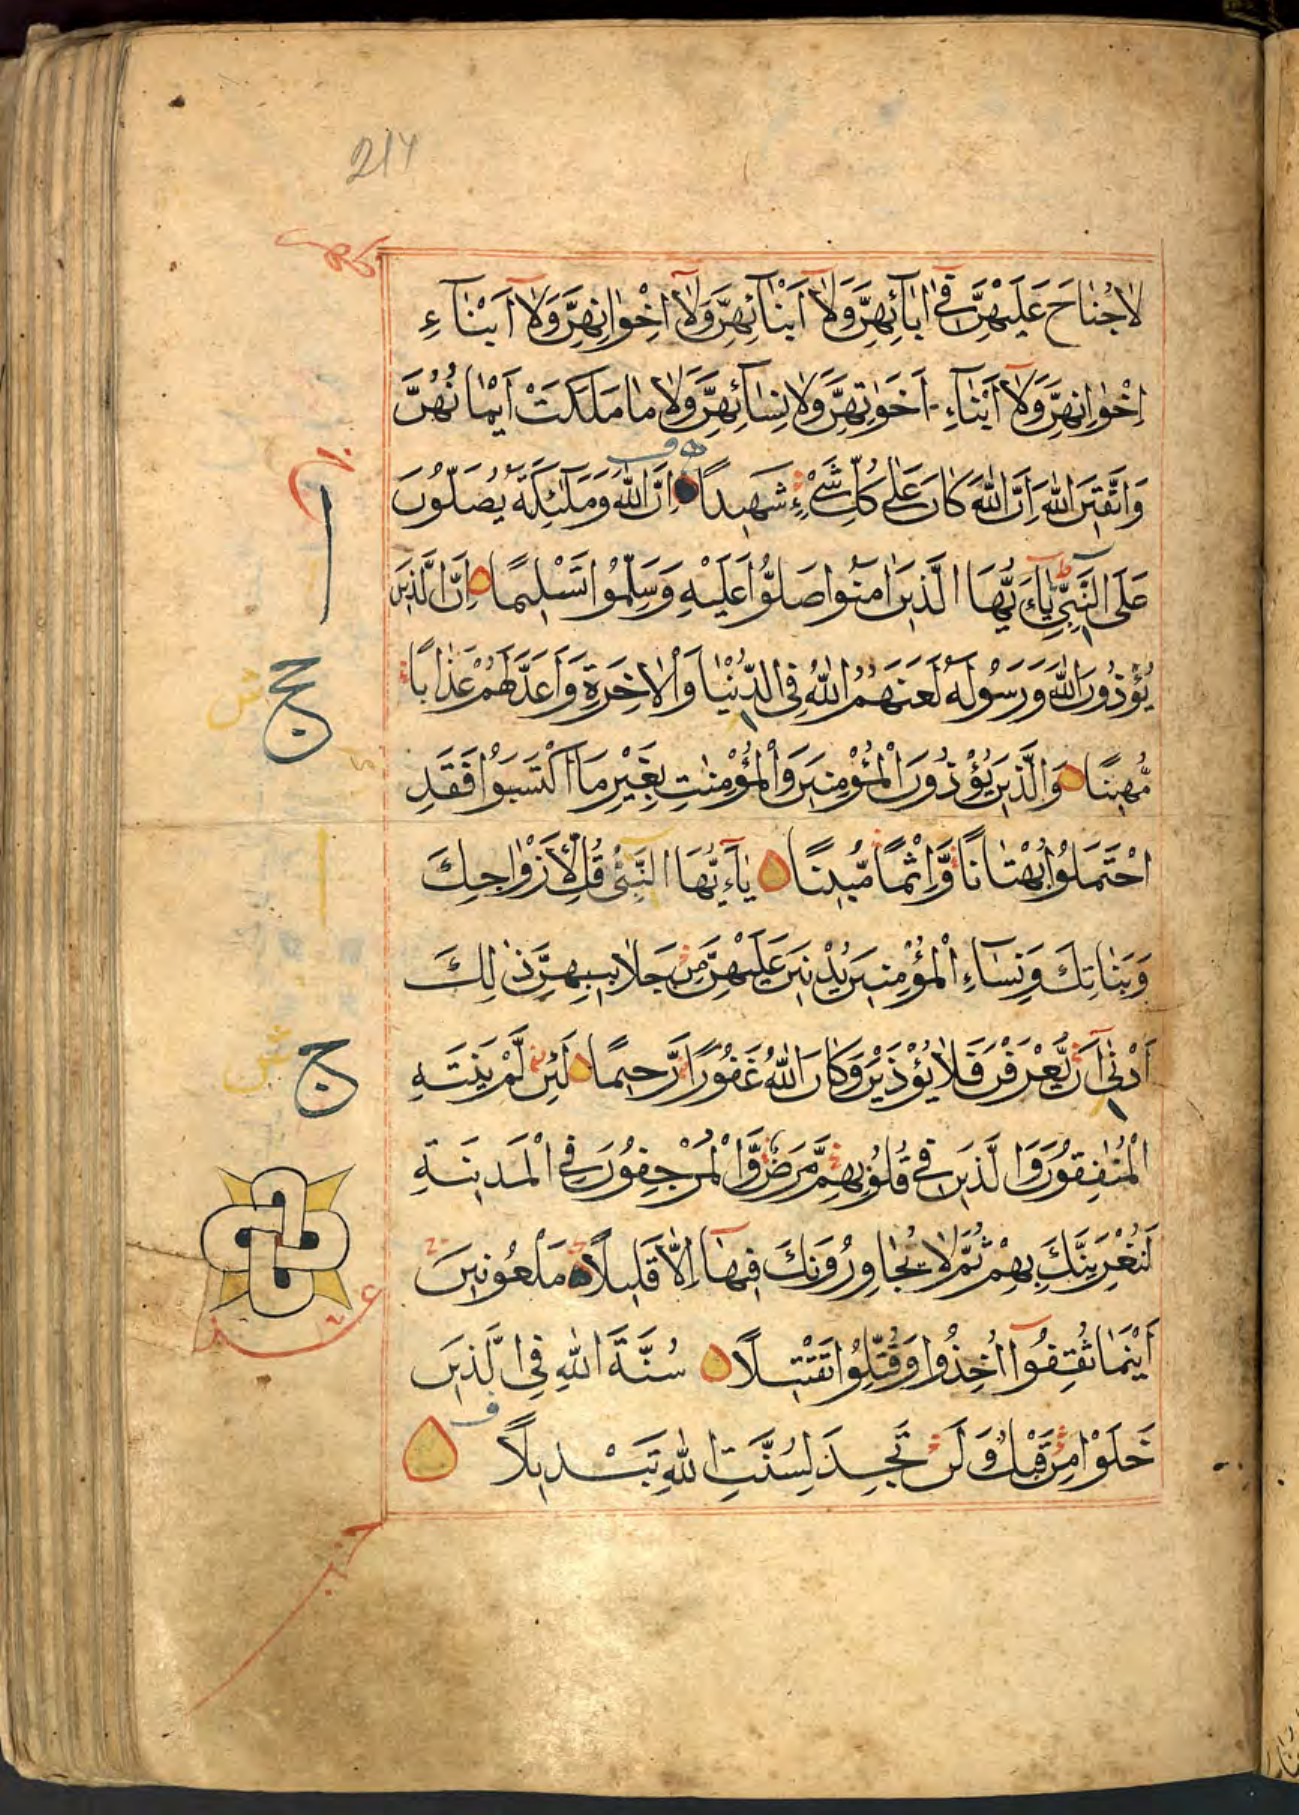 214
لَا جُنَاحَ عَلَيْهِنَّ فِي اٰبَآئِهِنَّ وَلَآ اَبْنَآئِهِنَّ وَلَآ اِخْوَانِهِنَّ وَلَآ اَبْنَآءِ
اِخْوَانِهِنَّ وَلَآ اَبْنَآءِ اَخَوَاتِهِنَّ وَلَا نِسَآئِهِنَّ وَلَا مَا مَلَكَتْ اَيْمَانُهُنَّ
وَاتَّقِينَ اللّٰهَ اِنَّ اللّٰهَ كَانَ عَلٰى كُلِّ شَيْءٍ شَهِيدًا اِنَّ اللّٰهَ وَمَلٰٓئِكَتَهُ يُصَلُّونَ
عَلَى النَّبِيِّ يَآءَيُّهَا الَّذِينَ اٰمَنُوا صَلُّوا عَلَيْهِ وَسَلِّمُوا تَسْلِيمًا اِنَّ الَّذِينَ
يُؤْذُونَ اللّٰهَ وَرَسُولَهُ لَعَنَهُمُ اللّٰهُ فِي الدُّنْيَا وَالْاٰخِرَةِ وَاَعَدَّ لَهُمْ عَذَابًا
مُّهِينًا وَالَّذِينَ يُؤْذُونَ الْمُؤْمِنِينَ وَالْمُؤْمِنٰتِ بِغَيْرِ مَا اكْتَسَبُوا فَقَدِ
احْتَمَلُوا بُهْتَانًا وَّاِثْمًا مُّبِينًا يَآءَيُّهَا النَّبِيُّ قُلْ لِّاَزْوَاجِكَ
وَبَنَاتِكَ وَنِسَآءِ الْمُؤْمِنِينَ يُدْنِينَ عَلَيْهِنَّ مِنْ جَلَابِيبِهِنَّ ذٰلِكَ
اَدْنٰى اَنْ يُّعْرَفْنَ فَلَا يُؤْذَيْنَ وَكَانَ اللّٰهُ غَفُورًا رَّحِيمًا لَئِنْ لَّمْ يَنْتَهِ
الْمُنٰفِقُونَ وَالَّذِينَ فِي قُلُوبِهِمْ مَّرَضٌ وَّالْمُرْجِفُونَ فِي الْمَدِينَةِ
لَنُغْرِيَنَّكَ بِهِمْ ثُمَّ لَا يُجَاوِرُونَكَ فِيهَآ اِلَّا قَلِيلًا مَلْعُونِينَ
اَيْنَمَا ثُقِفُوٓا اُخِذُوا وَقُتِّلُوا تَقْتِيلًا سُنَّةَ اللّٰهِ فِي الَّذِينَ
خَلَوْا مِنْ قَبْلُ وَلَنْ تَجِدَ لِسُنَّتِ اللّٰهِ تَبْدِيلًا
حزب